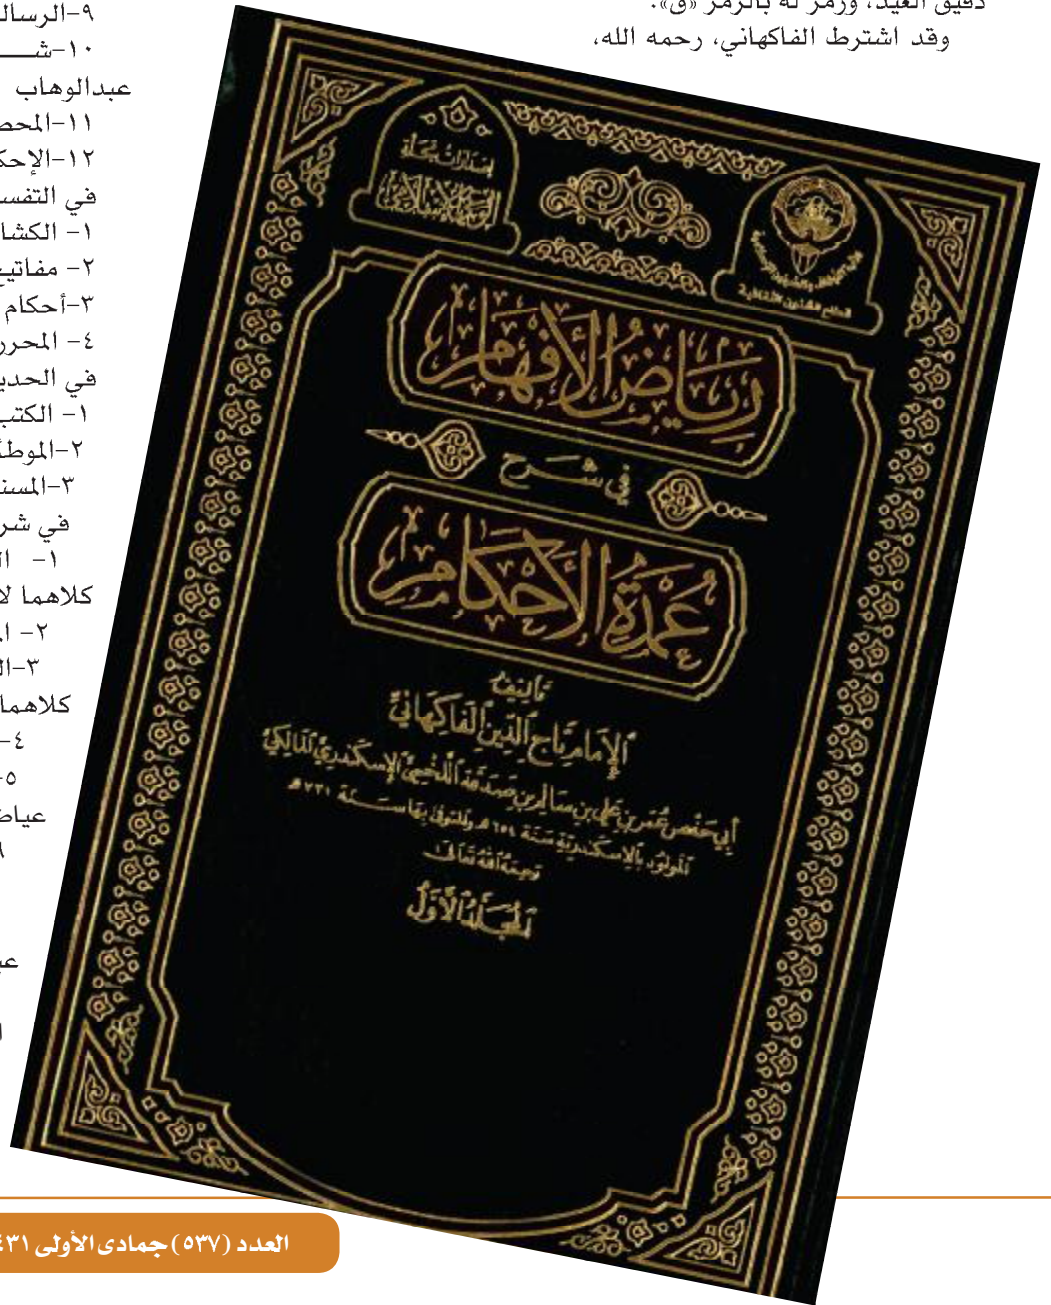 دقيق العيد، ورمز له بالرمز «ق».
وقد اشترط الفاكهاني، رحمه الله،
٩-الرسال
١٠-شـ
عبدالوهاب
١١-المحص
١٢-الإحك
في التفس
١- الكشا
٢- مفاتيح
٣-أحكام
٤- المحرر
في الحدي
١- الكتب
٢-الموطأ
٣-المسن
في شر
١- ال
كلاهما لا
٢- ا
٣-ال
كلاهما
٤-
٥-
عياض
٦
عب
ا
إصدارات مجلة
الوعي الإسلامي
وزارة الأوقاف والشؤون الإسلامية
قطاع الشئون الثقافية
رياض الأفهام
في شرح
عمدة الأحكام
تأليف
الإمام تاج الدين الفاكهاني
أبي حفص عمر بن علي بن سالم بن صدقة اللخمي الإسكندري المالكي
المولود بالإسكندرية سنة ٦٥٤ هـ والمتوفى بها سنة ٧٣١ هـ
رحمه الله تعالى
المجلد الأول
العدد (٥٣٧) جمادى الأولى ٤٣١